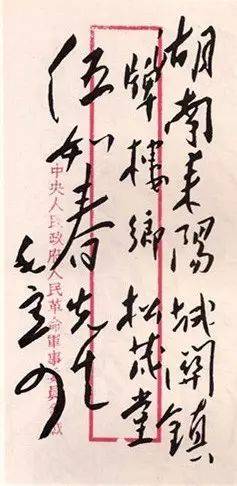 湖南耒陽城關鎮
牌樓鄉松茂堂
伍如春先生
毛寄
中央人民政府人民革命軍事委員會緘